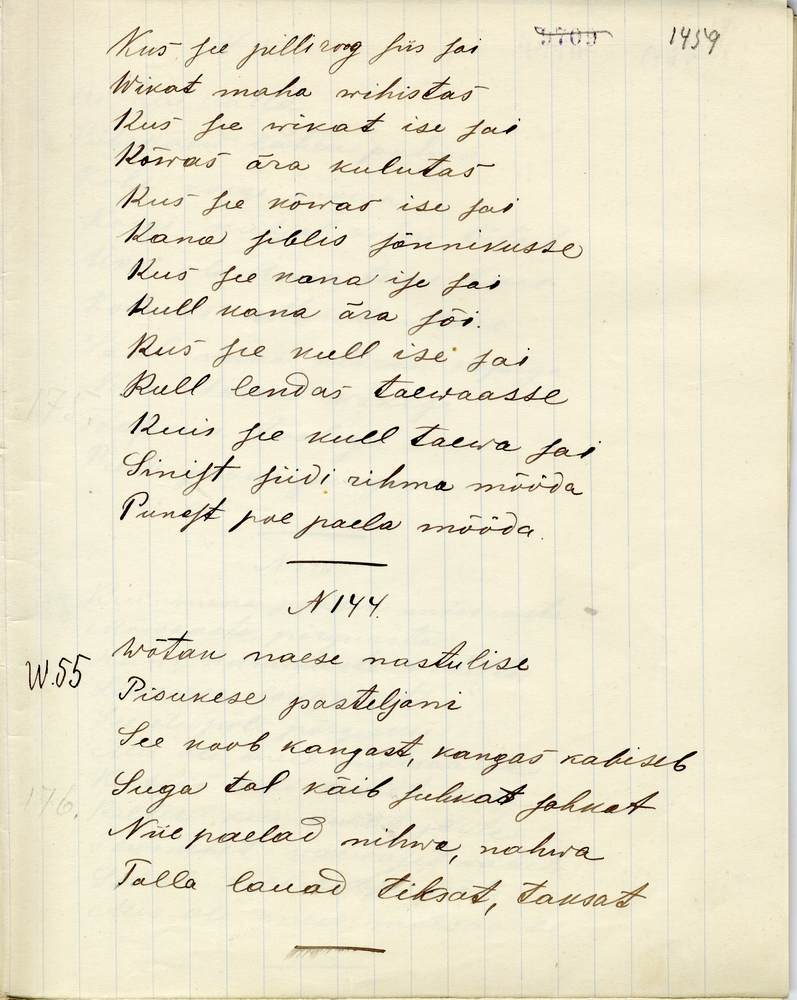 9709 1459
Kus see pilliroog siis sai
Wikat maha wihistas
Kus see wikat ise sai
Kõwas ära kulutas
Kus see kõwas ise sai
Kana siblis sõnnikusse
Kus see kana ise sai
Kull kana ära sõi.
Kus see kull ise sai
Kull lendas taewaasse
Kuis see kull taewa sai
Sinist siidi rihma mööda
Punast poe paela mööda.
N 144.
W.55
Wõtan naese nastulise
Pisukese pasteljani
See koob kangast, kangas kabiseb
Suga tal käib suhkat sahkat
Niie paelad nihwa, nahwa
Talla lauad tiksat, taksat
175.
176.